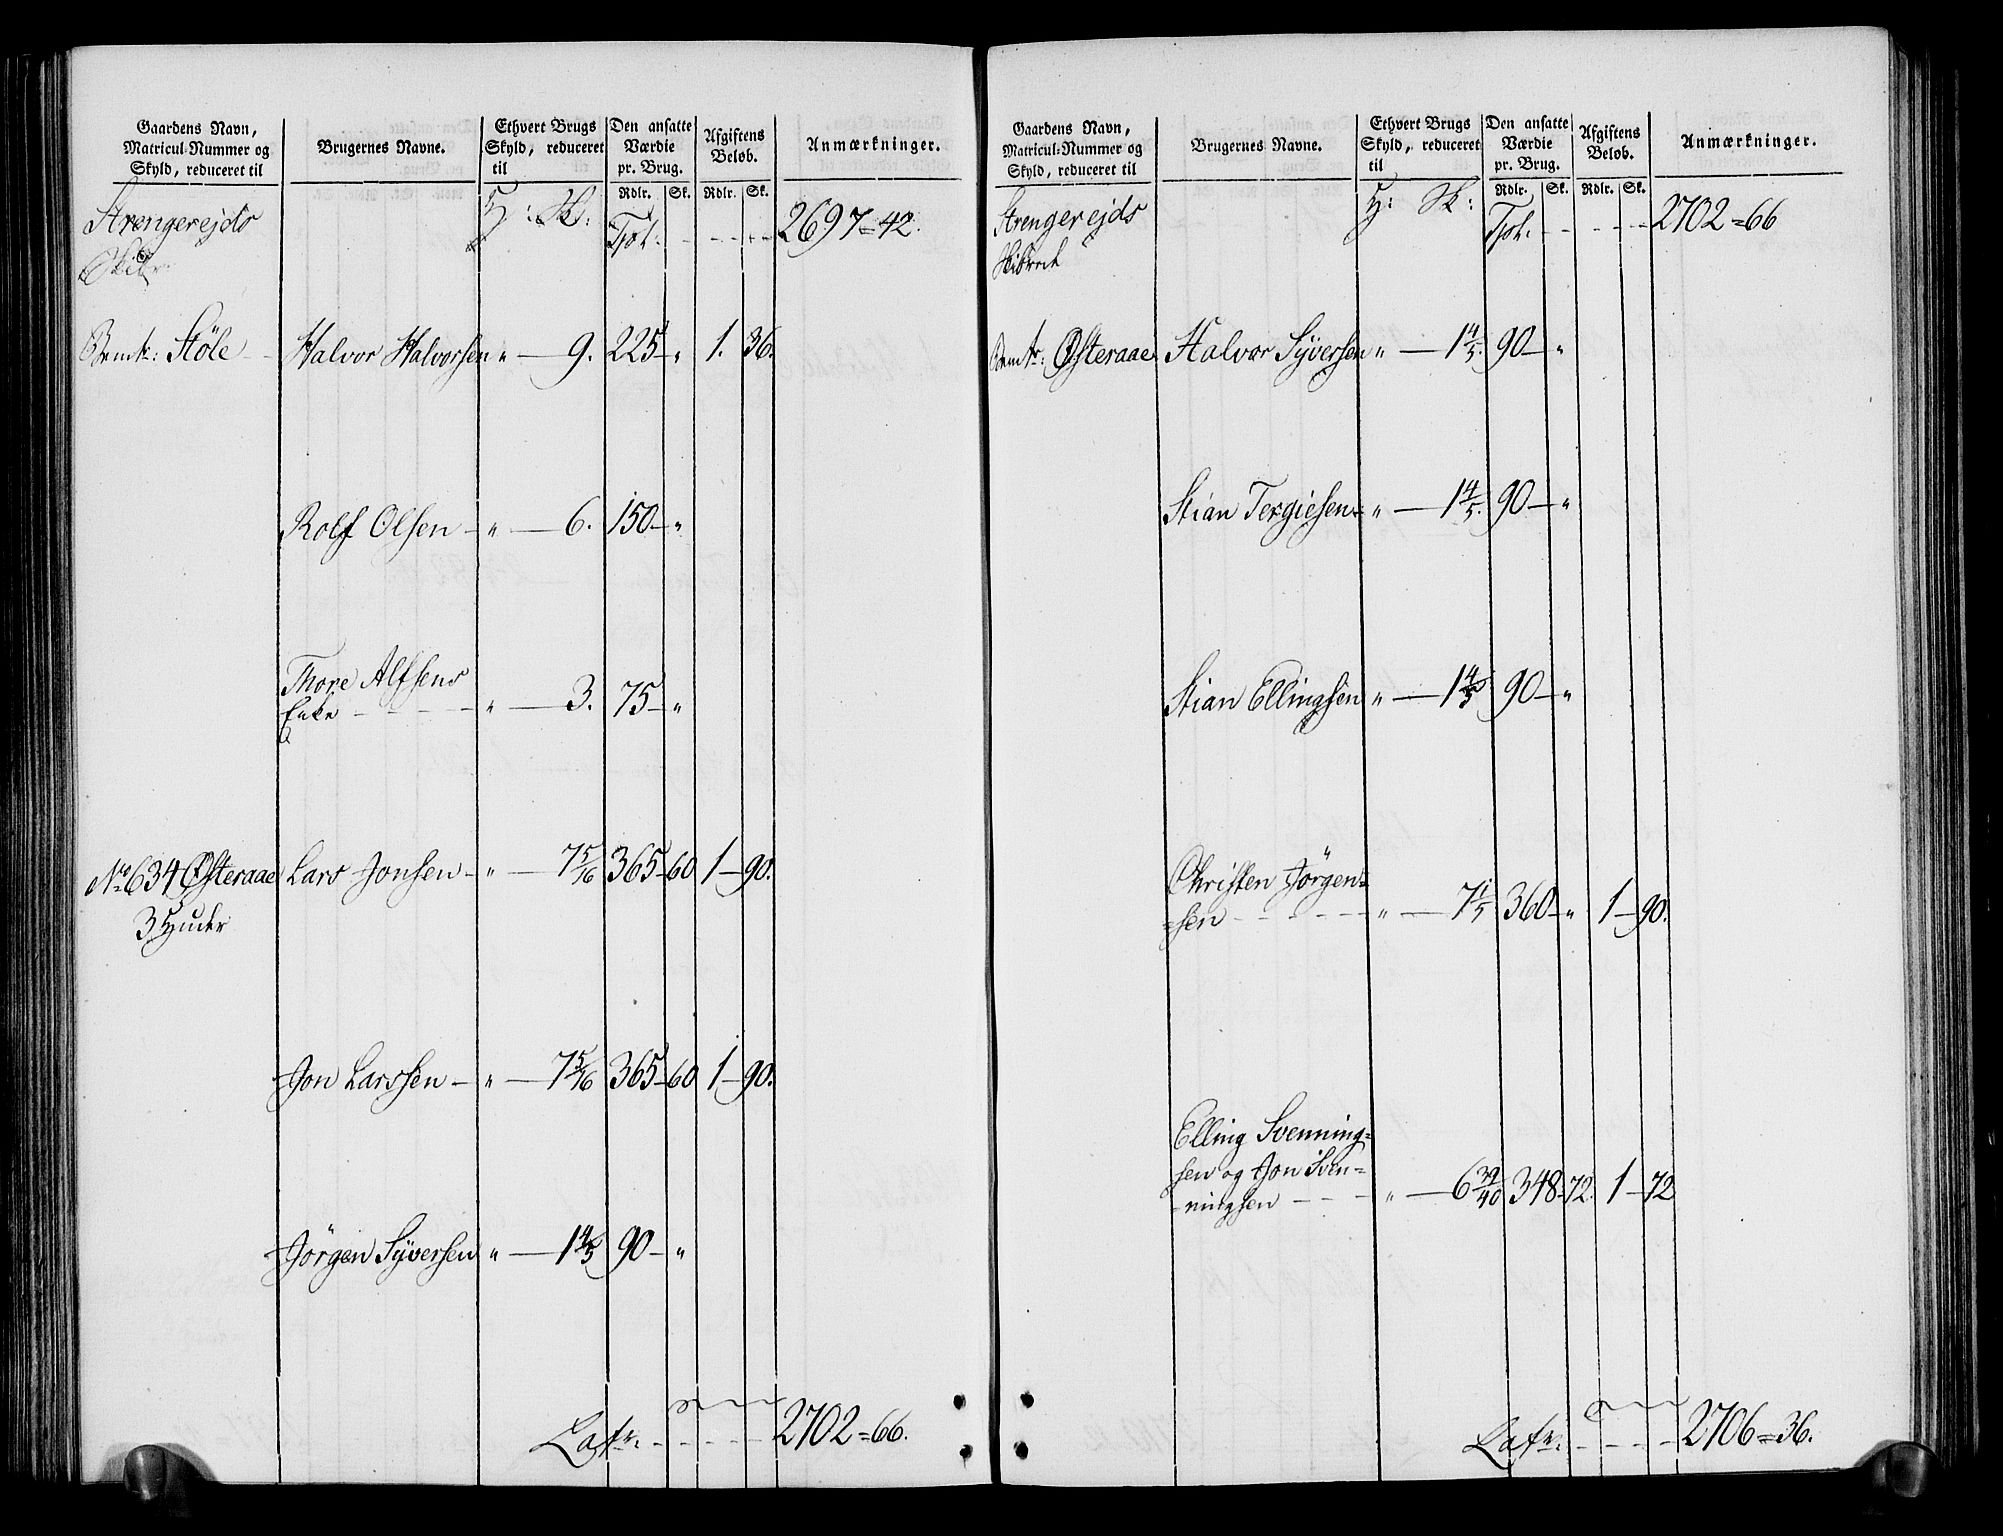 Gaardens Navn,
Matricul-Nummer og
Skyld, reduceret til
Brugernes Navne.
Ethvert Brugs
Skyld, reduceret
til
Den ansatte
Værdie
pr. Brug.
Rdlr. Sk.
Afgiftens
Beløb.
Rdlr. Sk.
Anmærkninger.
Strengerejds
H: Sk:
2697=42.
Støle Halvor Halvorsen " — 9. 225 — " 1. 36.
Rolf Olsen — " — 6. 150 — "
Thore Alfsens
Enke " — 3. 75 — "
No 634 Østeraae Lars Jonsen — " — 7 5/16 365 — 60 1 — 90.
3 Huder
Jon Larssen — " — 7 5/16 365 — 60 1 — 90.
Jörgen Syversen " — 1 4/5 90 — "
Lat. 2702=66.
Gaardens Navn,
Matricul-Nummer og
Skyld, reduceret til
Brugernes Navne.
Ethvert Brugs
Skyld, reduceret
til
Den ansatte
Værdie
pr. Brug.
Rdlr. Sk.
Afgiftens
Beløb.
Rdlr. Sk.
Anmærkninger.
Strengerejds
H: Sk:
2702=66
Skibred
Østeraae Halvor Syversen " — 1 4/5. 90 — "
Stian Tergiesen " — 1 4/5. 90 — "
Stian Ellingsen " — 1 4/5 90 — "
Christen Jörgen=
=sen " — 7 1/5 360 — " 1 — 90.
Elling Svenning=
sen og Jon Sven=
=ningsen " — 6 39/40 348 — 72. 1 — 72
Lat. 2706=36.